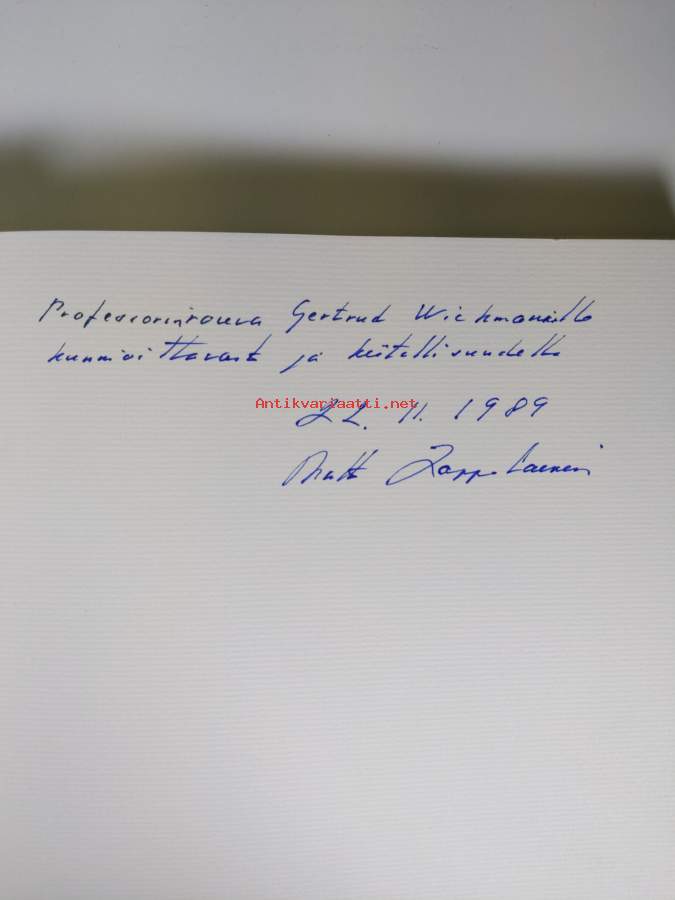 Professorinrouva Gertrud Wichmannille
kunnioittavasti ja kiitollisuudella
Antikvariaatti.net
22. 11. 1989
Matti